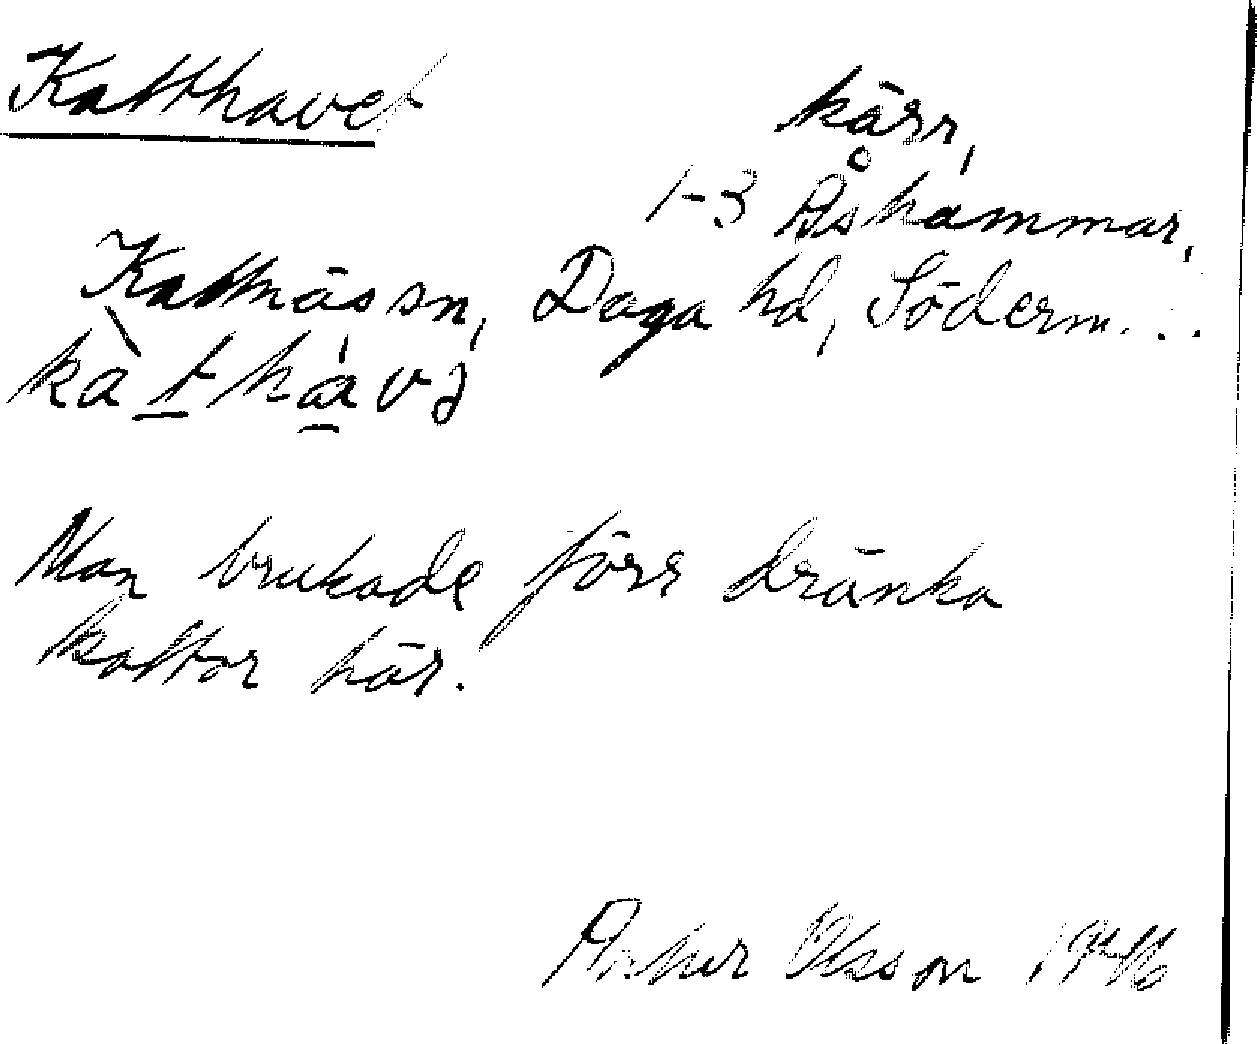 Katthavet
kärr,
1-3 Åshammar,
Kattnäs sn, Daga hd, Söderm...
kàthávə
Man brukade förr dränka
kattor här.
Artur Olsson 1946